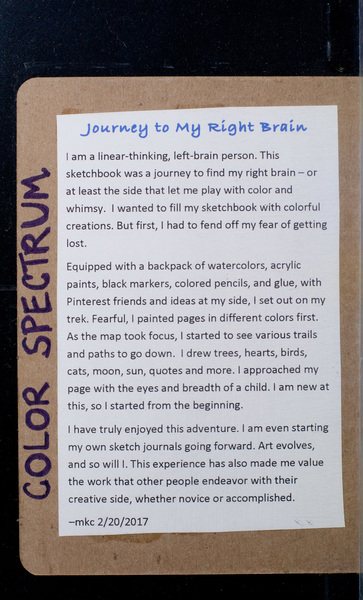 COLOR SPECTRUM
Journey to My Right Brain
I am a linear-thinking, left-brain person. This
sketchbook was a journey to find my right brain – or
at least the side that let me play with color and
whimsy.  I wanted to fill my sketchbook with colorful
creations. But first, I had to fend off my fear of getting
lost.
Equipped with a backpack of watercolors, acrylic
paints, black markers, colored pencils, and glue, with
Pinterest friends and ideas at my side, I set out on my
trek. Fearful, I painted pages in different colors first.
As the map took focus, I started to see various trails
and paths to go down.  I drew trees, hearts, birds,
cats, moon, sun, quotes and more. I approached my
page with the eyes and breadth of a child. I am new at
this, so I started from the beginning.
I have truly enjoyed this adventure. I am even starting
my own sketch journals going forward. Art evolves,
and so will I. This experience has also made me value
the work that other people endeavor with their
creative side, whether novice or accomplished.
–mkc 2/20/2017